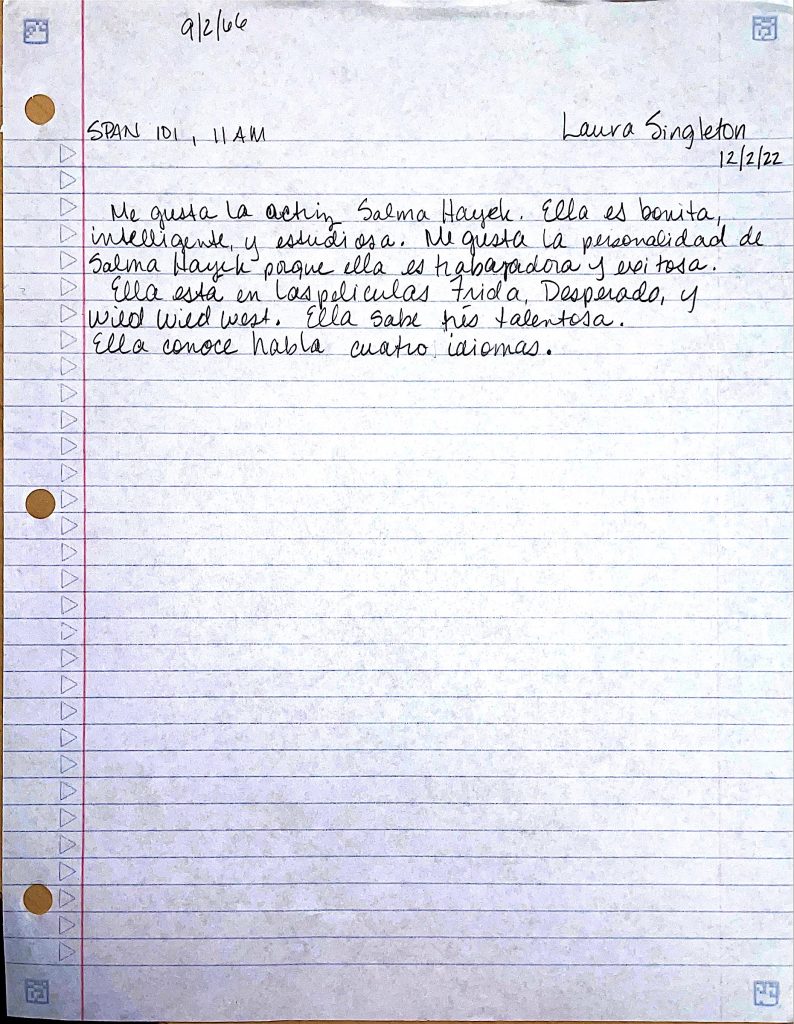 9/2/66
SPAN 101, 11 AM
Laura Singleton
12/2/22
Me gusta la actriz Salma Hayek. Ella es bonita,
intelligente, y estudiosa. Me gusta la personalidad de
Salma Hayek porque ella es trabajadora y exitosa.
Ella está en las peliculas Frida, Desperado, y
Wild Wild West. Ella sabe três talentosa.
Ella conoce habla cuatro idiomas.